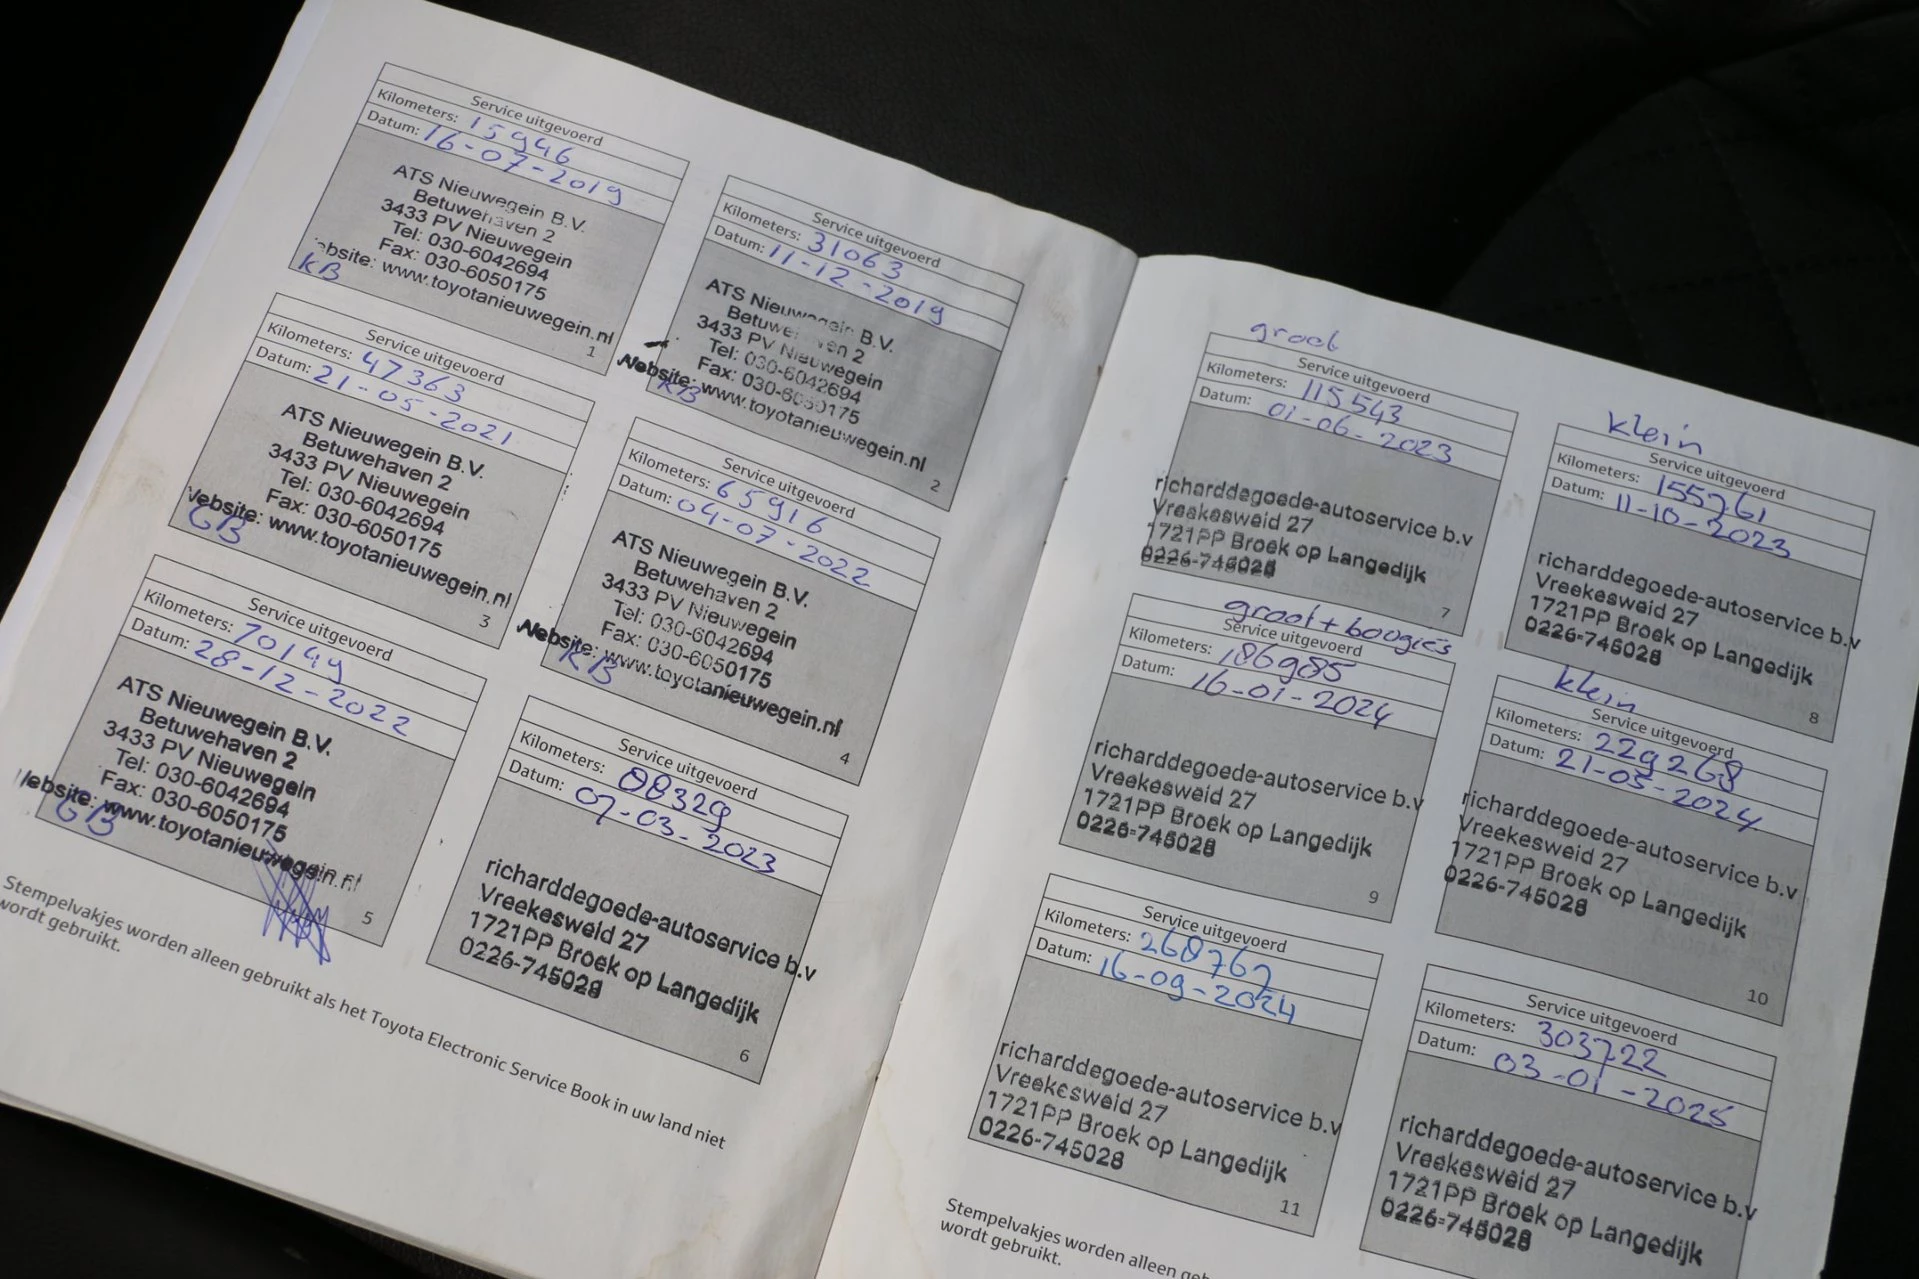 Service uitgevoerd
Kilometers: 15946
Datum: 16-07-2019
ATS Nieuwegein B.V.
Betuwehaven 2
3433 PV Nieuwegein
Tel: 030-6042694
Fax: 030-6050175
ebsite: www.toyotanieuwegein.nl
KB
1
Service uitgevoerd
Kilometers: 31063
Datum: 11-12-2019
ATS Nieuwegein B.V.
Betuwehaven 2
3433 PV Nieuwegein
Tel: 030-6042694
Fax: 030-6050175
Website: www.toyotanieuwegein.nl
KB
2
Service uitgevoerd
Kilometers: 47363
Datum: 21-05-2021
ATS Nieuwegein B.V.
Betuwehaven 2
3433 PV Nieuwegein
Tel: 030-6042694
Fax: 030-6050175
Website: www.toyotanieuwegein.nl
GB
3
Service uitgevoerd
Kilometers: 65916
Datum: 04-07-2022
ATS Nieuwegein B.V.
Betuwehaven 2
3433 PV Nieuwegein
Tel: 030-6042694
Fax: 030-6050175
Website: www.toyotanieuwegein.nl
KB
4
Service uitgevoerd
Kilometers: 70149
Datum: 28-12-2022
ATS Nieuwegein B.V.
Betuwehaven 2
3433 PV Nieuwegein
Tel: 030-6042694
Fax: 030-6050175
Website: www.toyotanieuwegein.nl
GB
5
Service uitgevoerd
Kilometers: 88329
Datum: 07-03-2023
richarddegoede-autoservice b.v
Vreekesweid 27
1721PP Broek op Langedijk
0226-745028
6
Stempelvakjes worden alleen gebruikt als het Toyota Electronic Service Book in uw land niet
wordt gebruikt.
groot
Service uitgevoerd
Kilometers: 115543
Datum: 01-06-2023
richarddegoede-autoservice b.v
Vreekesweid 27
1721PP Broek op Langedijk
0226-745028
7
klein
Service uitgevoerd
Kilometers: 155761
Datum: 11-10-2023
richarddegoede-autoservice b.v
Vreekesweid 27
1721PP Broek op Langedijk
0226-745028
8
groot + bougies
Service uitgevoerd
Kilometers: 186985
Datum: 16-01-2024
richarddegoede-autoservice b.v
Vreekesweid 27
1721PP Broek op Langedijk
0226-745028
9
klein
Service uitgevoerd
Kilometers: 229268
Datum: 21-05-2024
richarddegoede-autoservice b.v
Vreekesweid 27
1721PP Broek op Langedijk
0226-745028
10
Service uitgevoerd
Kilometers: 268767
Datum: 16-09-2024
richarddegoede-autoservice b.v
Vreekesweid 27
1721PP Broek op Langedijk
0226-745028
11
Service uitgevoerd
Kilometers: 303722
Datum: 03-01-2025
richarddegoede-autoservice b.v
Vreekesweid 27
1721PP Broek op Langedijk
0226-745028
Stempelvakjes worden alleen
wordt gebruikt.